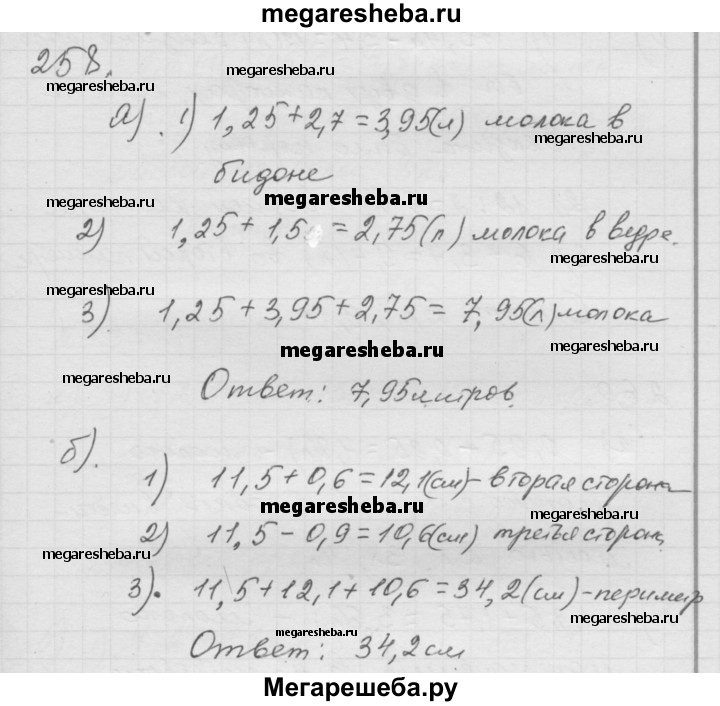 megaresheba.ru
258.
megaresheba.ru
megaresheba.ru
а) 1) 1,25+2,7=3,95(л) молока в
megaresheba.ru
бидоне
megaresheba.ru
megaresheba.ru
2) 1,25+1,5 =2,75(л) молока в ведре.
megaresheba.ru
megaresheba.ru
3) 1,25+3,95+2,75= 7,95(л) молока
megaresheba.ru
megaresheba.ru
megaresheba.ru
Ответ: 7,95 литров.
б).
1) 11,5+0,6=12,1(см)-вторая сторона
megaresheba.ru
megaresheba.ru
2) 11,5-0,9=10,6(см) третья сторона
megaresheba.ru
3). 11,5+12,1+10,6=34,2(см)-периметр
megaresheba.ru
megaresheba.ru
Ответ: 34,2см
Мегарешеба.ру